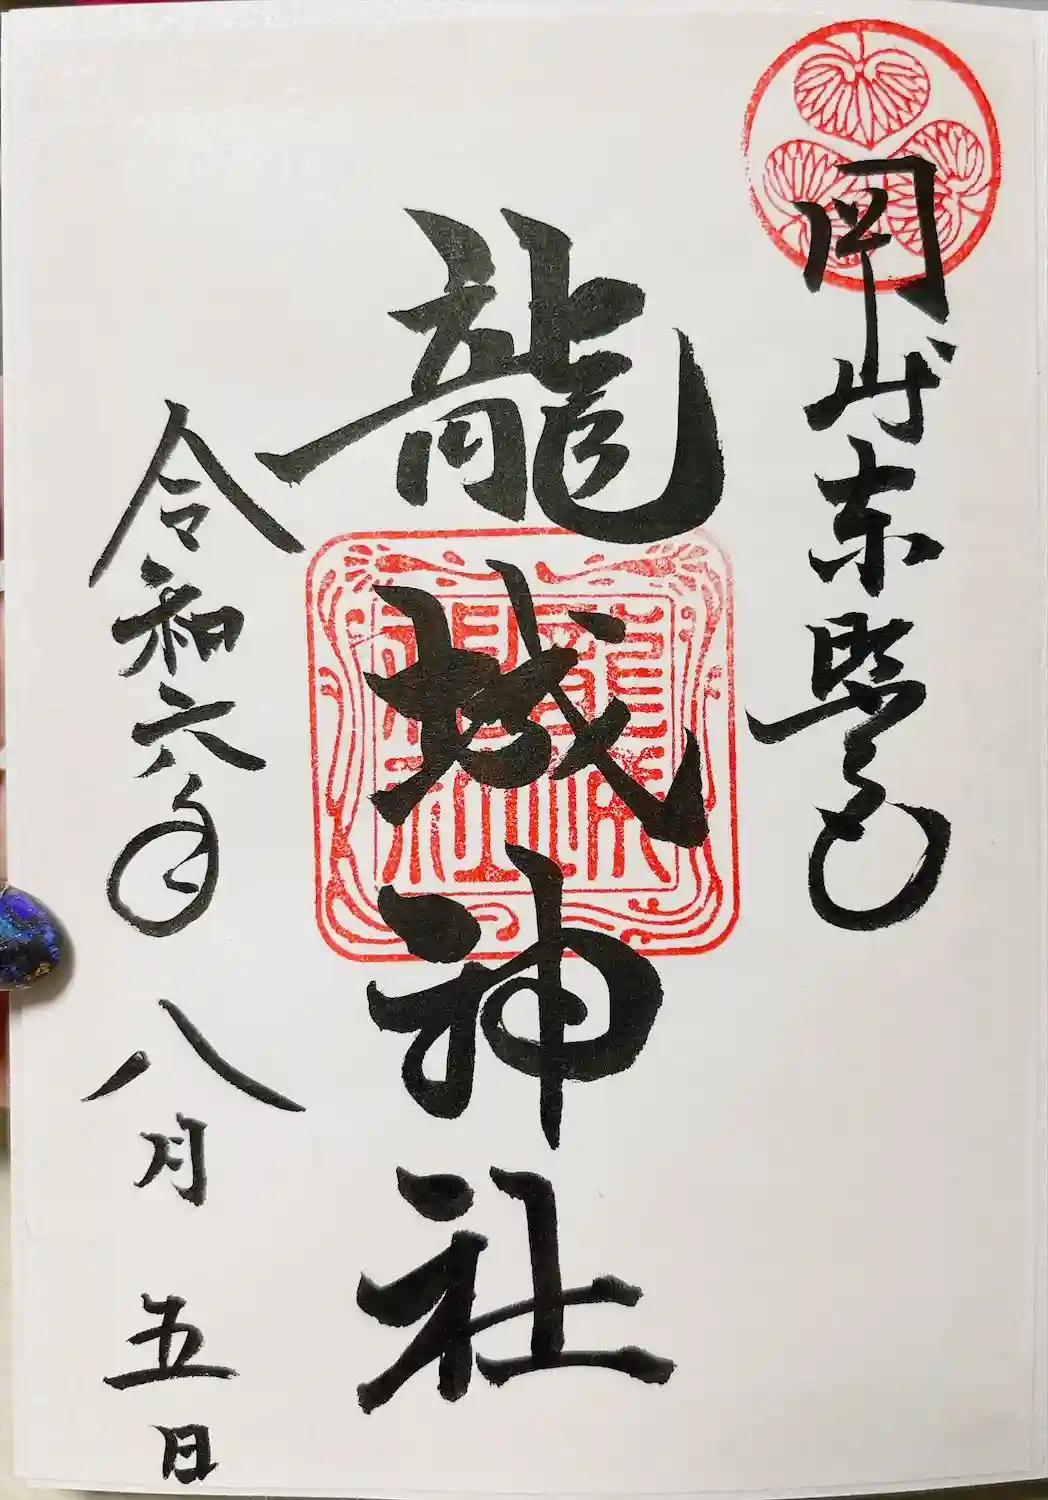 岡崎東照宮
龍城神社
龍城神社
令和六年
八月
五日